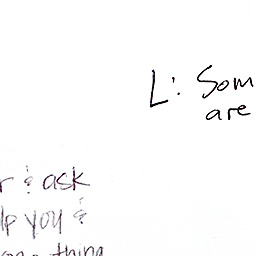 L: Som
are
r & ask
lp you &
thing